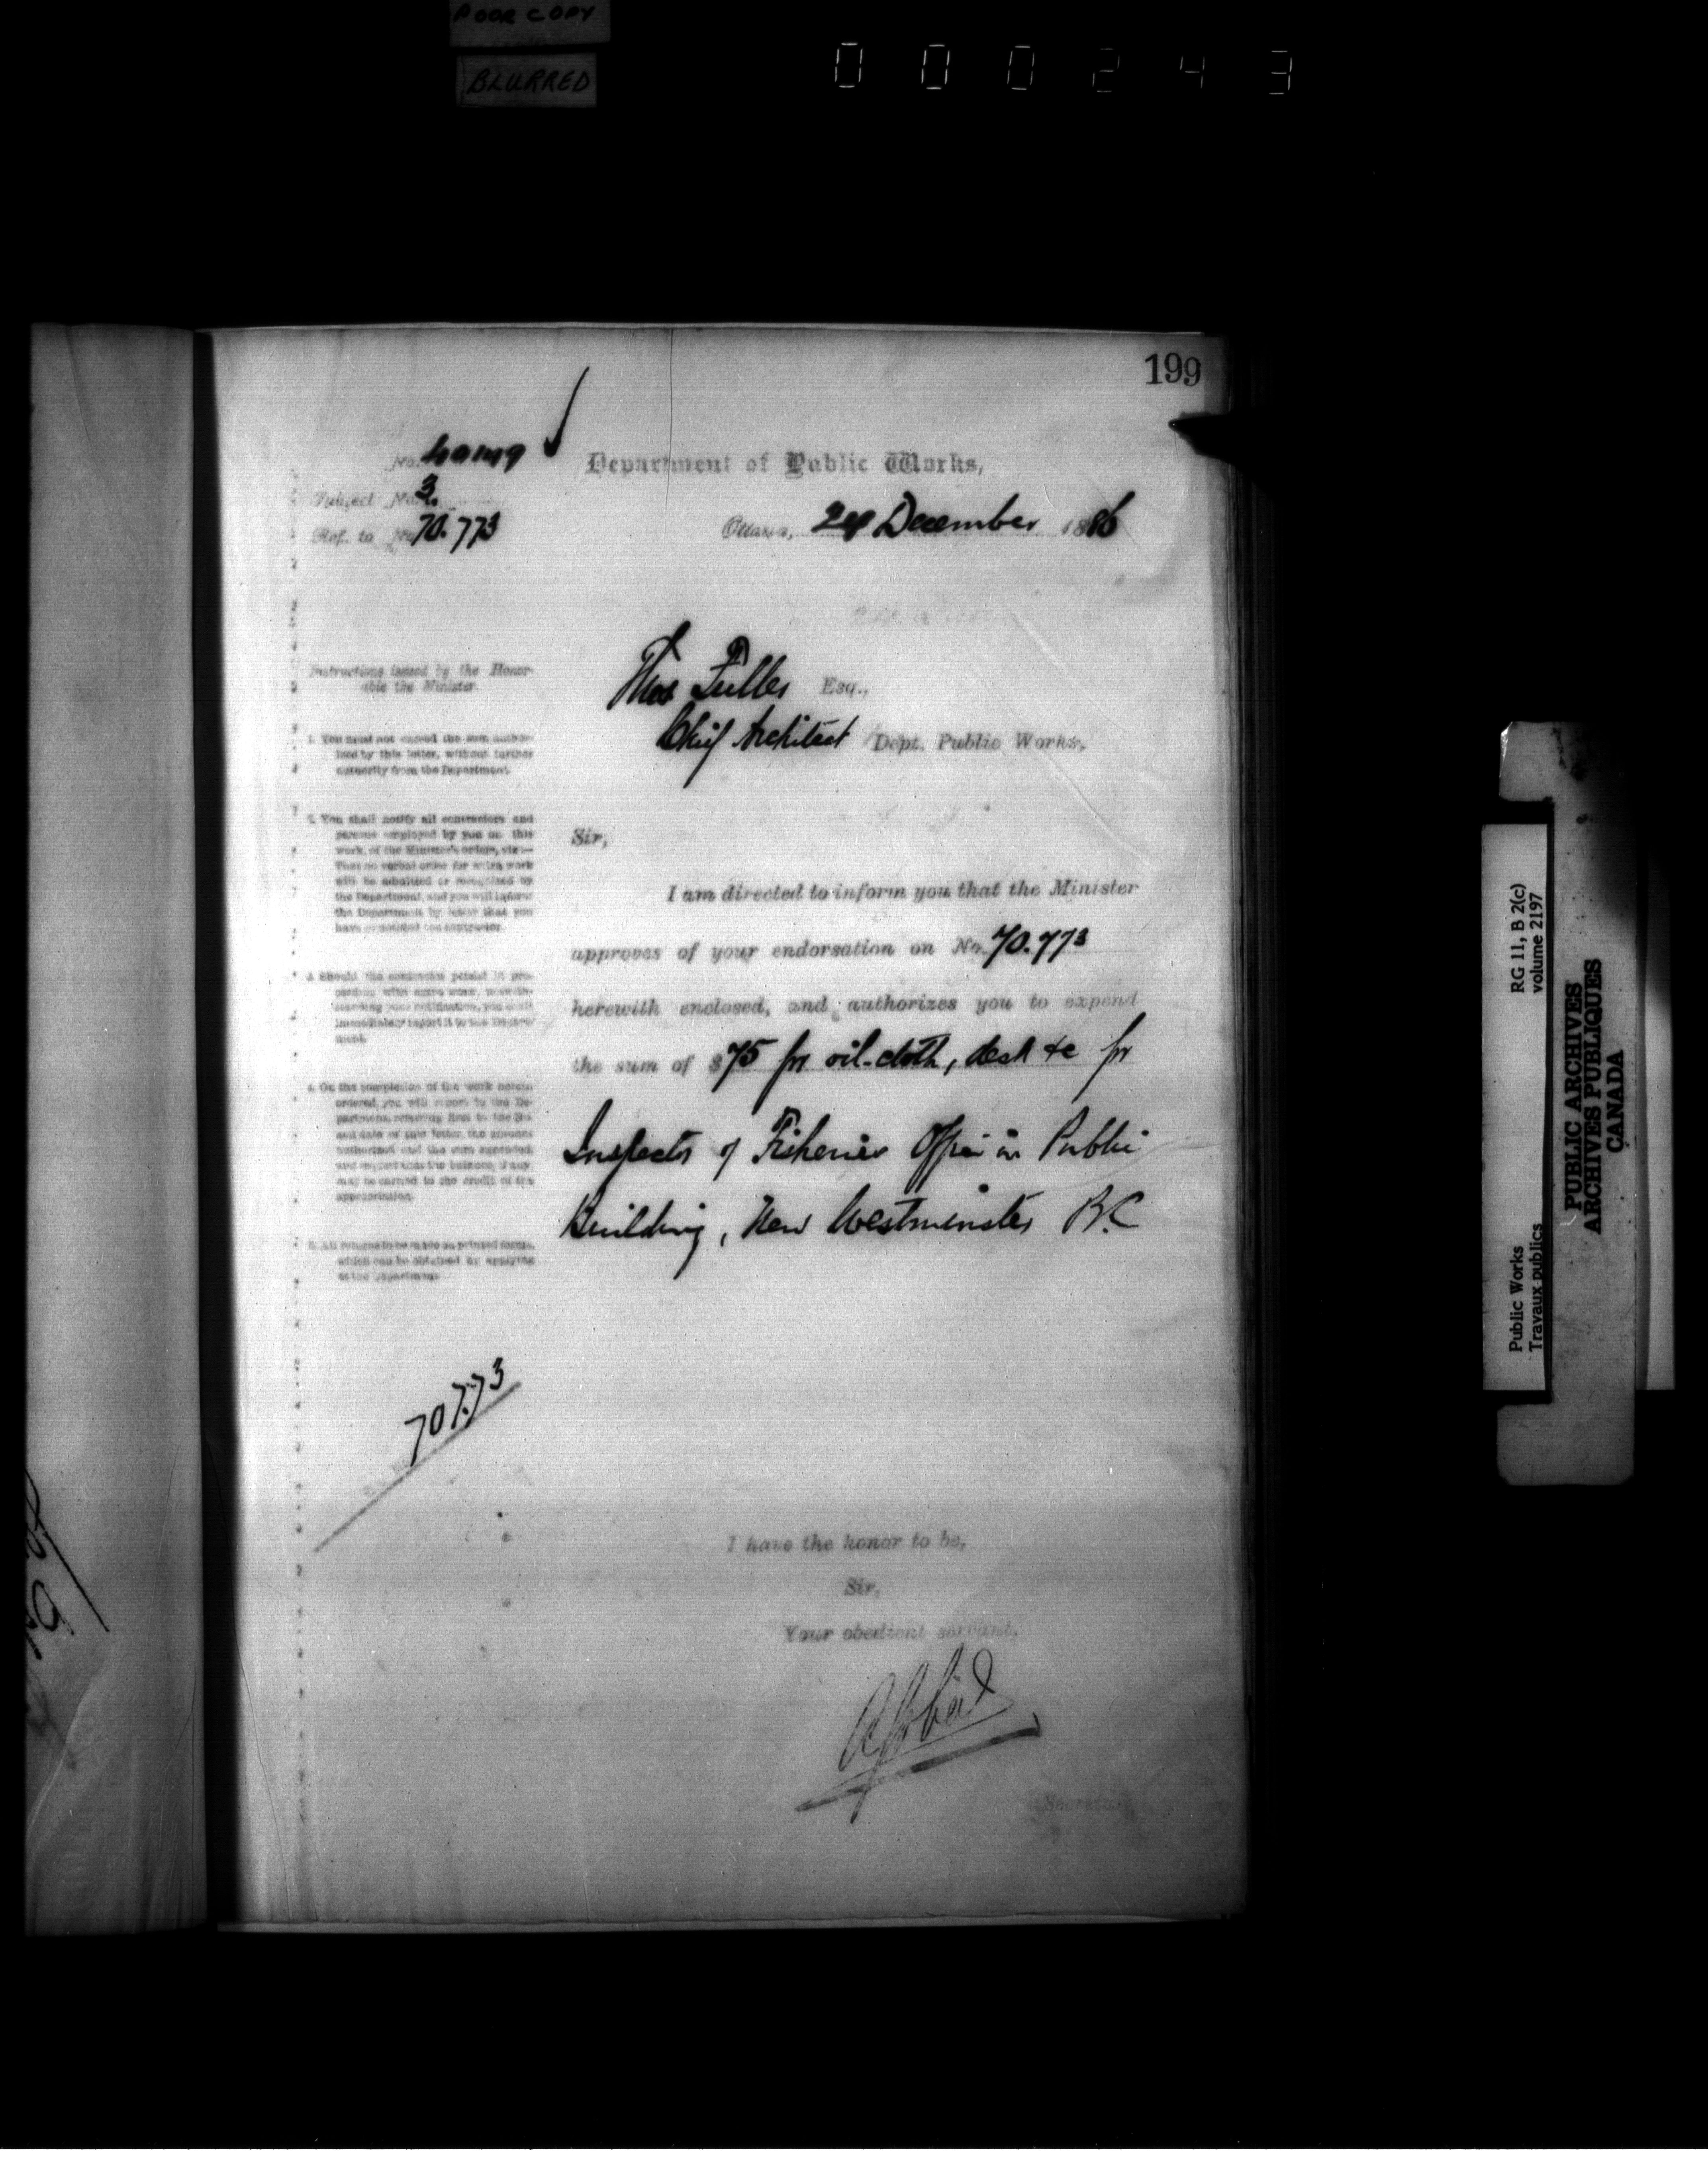 POOR COPY
BLURRED
000243
199
No.
Department of Public Works,
Subject No. 3.
Ref. to No. 70.773
Ottawa, 24 December 1886
Instructions issued by the Honor-
able the Minister.
Thos Fuller Esq.,
Chief Architect Dept. Public Works,
1. You must not exceed the sum author-
ized by this letter, without further
authority from the Department.
2. You shall notify all contractors and
persons employed by you on this
work, of the Minister's orders, viz:—
That no verbal order for extra work
will be admitted or recognized by
the Department, and you will inform
the Department by letter that you
have so notified the contractor.
3. Should the contractor persist in pro-
ceeding with extra work, notwith-
standing your notification, you shall
immediately report it to the Depart-
ment.
4. On the completion of the work herein
ordered, you will report to the De-
partment, referring first to the No.
and date of this letter, the amount
authorized and the sum expended,
and request that the balance, if any,
may be carried to the credit of the
appropriation.
5. All returns to be made on printed forms,
which can be obtained by applying
to the Department.
Sir,
I am directed to inform you that the Minister
approves of your endorsation on No. 70.773
herewith enclosed, and authorizes you to expend
the sum of $75 for oil-cloth, desk &c for
Inspector of Fisheries Office in Public
Building, New Westminster B.C
70773
I have the honor to be,
Sir,
Your obedient servant,
A Gobeil
Secretary
Public Works
Travaux publics
RG 11, B 2(c)
volume 2197
PUBLIC ARCHIVES
ARCHIVES PUBLIQUES
CANADA